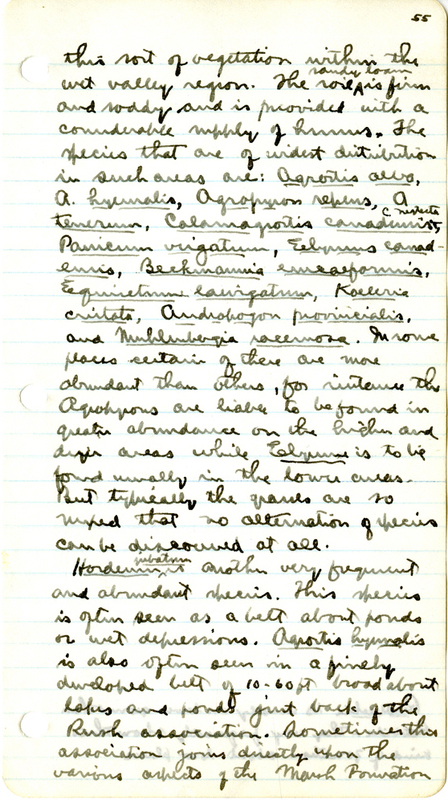 55
this sort of vegetation within the
wet valley region. The soil sandy loam is firm
and soddy and is provided with a
considerable supply of humus. The
species that are of widest distribution
in such areas are: Agrostis alba,
A. hyemalis, Agropyron repens, A
tenerum, Calamagrostis canadensis, C. neglecta
Panicum virgatum, Elymus canad-
ensis, Beckmannia erucaeformis,
Equisetum laevigatum, Koeleria
cristata, Andropogon provincialis,
and Muhlenbergia racemosa. In some
places certain of these are more
abundant than others, for instance the
Agropyrons are liable to be found in
greater abundance on the higher and
dryer areas while Elymus is to be
found usually in the lower areas.
But typically the grasses are so
mixed that no alternation of species
can be discovered at all.
Hordeum jubatum is another very frequent
and abundant species. This species
is often seen as a belt about ponds
or wet depressions. Agrostis hyemalis
is also often seen in a finely
developed belt of 10-60 ft broad about
lakes and ponds just back of the
Rush association. Sometimes this
association joins directly upon the
various aspects of the Marsh Formation